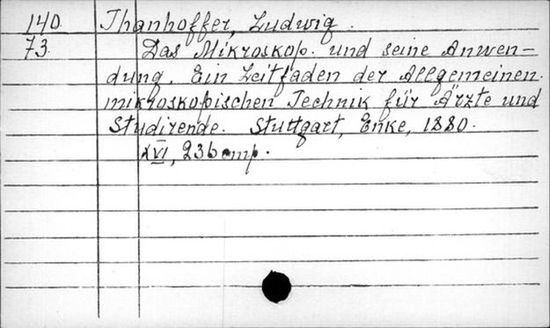 140. Thanhoffer, Ludwig.
73. Das Mikroskop. und seine Anwen-
dung. Ein Leitfaden der Allgemeinen
mikroskopischen Technik für Ärzte und
Studirende. Stuttgart, Enke, 1880.
XVI, 236